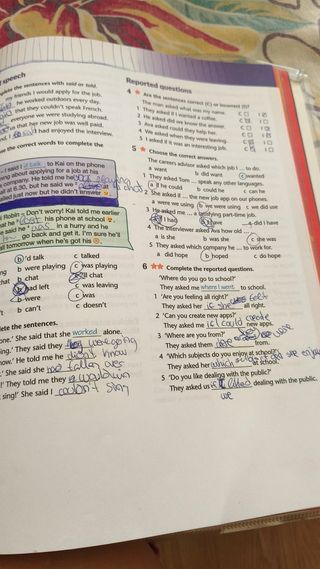 speech
complete the sentences with said or told.
my friends I would apply for the job.
he worked outdoors every day.
that they couldn't speak French.
everyone we were studying abroad.
us that her new job was well paid.
I had enjoyed the interview.
use the correct words to complete the
I said I to Kai on the phone
ing about applying for a job at his
company. He told me he
at 6.30, but he said we
called just now but he didn't answer
Robin – Don't worry! Kai told me earlier
that he lost his phone at school
in a hurry and he
go back and get it. I'm sure he'll
tomorrow when he's got his
b 'd talk c talked
b were playing c was playing
b chat chat
had left c was leaving
b were c was
b can't c doesn't
the sentences.
one.' She said that she worked alone.
ing.' They said they were going
now.' He told me he didn't know
.' She said she had fallen over
!' They told me they
sing!' She said I couldn't sing
Reported questions
4 ★ Are the sentences correct (C) or incorrect (I)?
The man asked what was my name. C I
1 They asked if I wanted a coffee. C I
2 He asked did we know the answer. C I
3 Ava asked could they help her. C I
4 We asked when they were leaving. C I
5 I asked if it was an interesting job. C I
5 ★ Choose the correct answers.
The careers advisor asked which job I ... to do.
a want b did want c wanted
1 They asked Tom ... speak any other languages.
a if he could b he could c he can
2 She asked if ... the new job app on our phones.
a were we using b we were using c we did use
3 He asked me ... a satisfying part-time job.
a I had b have c did I have
4 The interviewer asked Ava how old ... .
a is she b was she c she was
5 They asked which company he ... to work for.
a did hope b hoped c do hope
6 ★★ Complete the reported questions.
'Where do you go to school?'
They asked me where I went to school.
1 'Are you feeling all right?'
They asked her if she felt all right.
2 'Can you create new apps?'
They asked me if I could create new apps.
3 'Where are you from?'
They asked them from.
4 'Which subjects do you enjoy at school?'
They asked her which at school.
5 'Do you like dealing with the public?'
They asked us if liked dealing with the public.
we